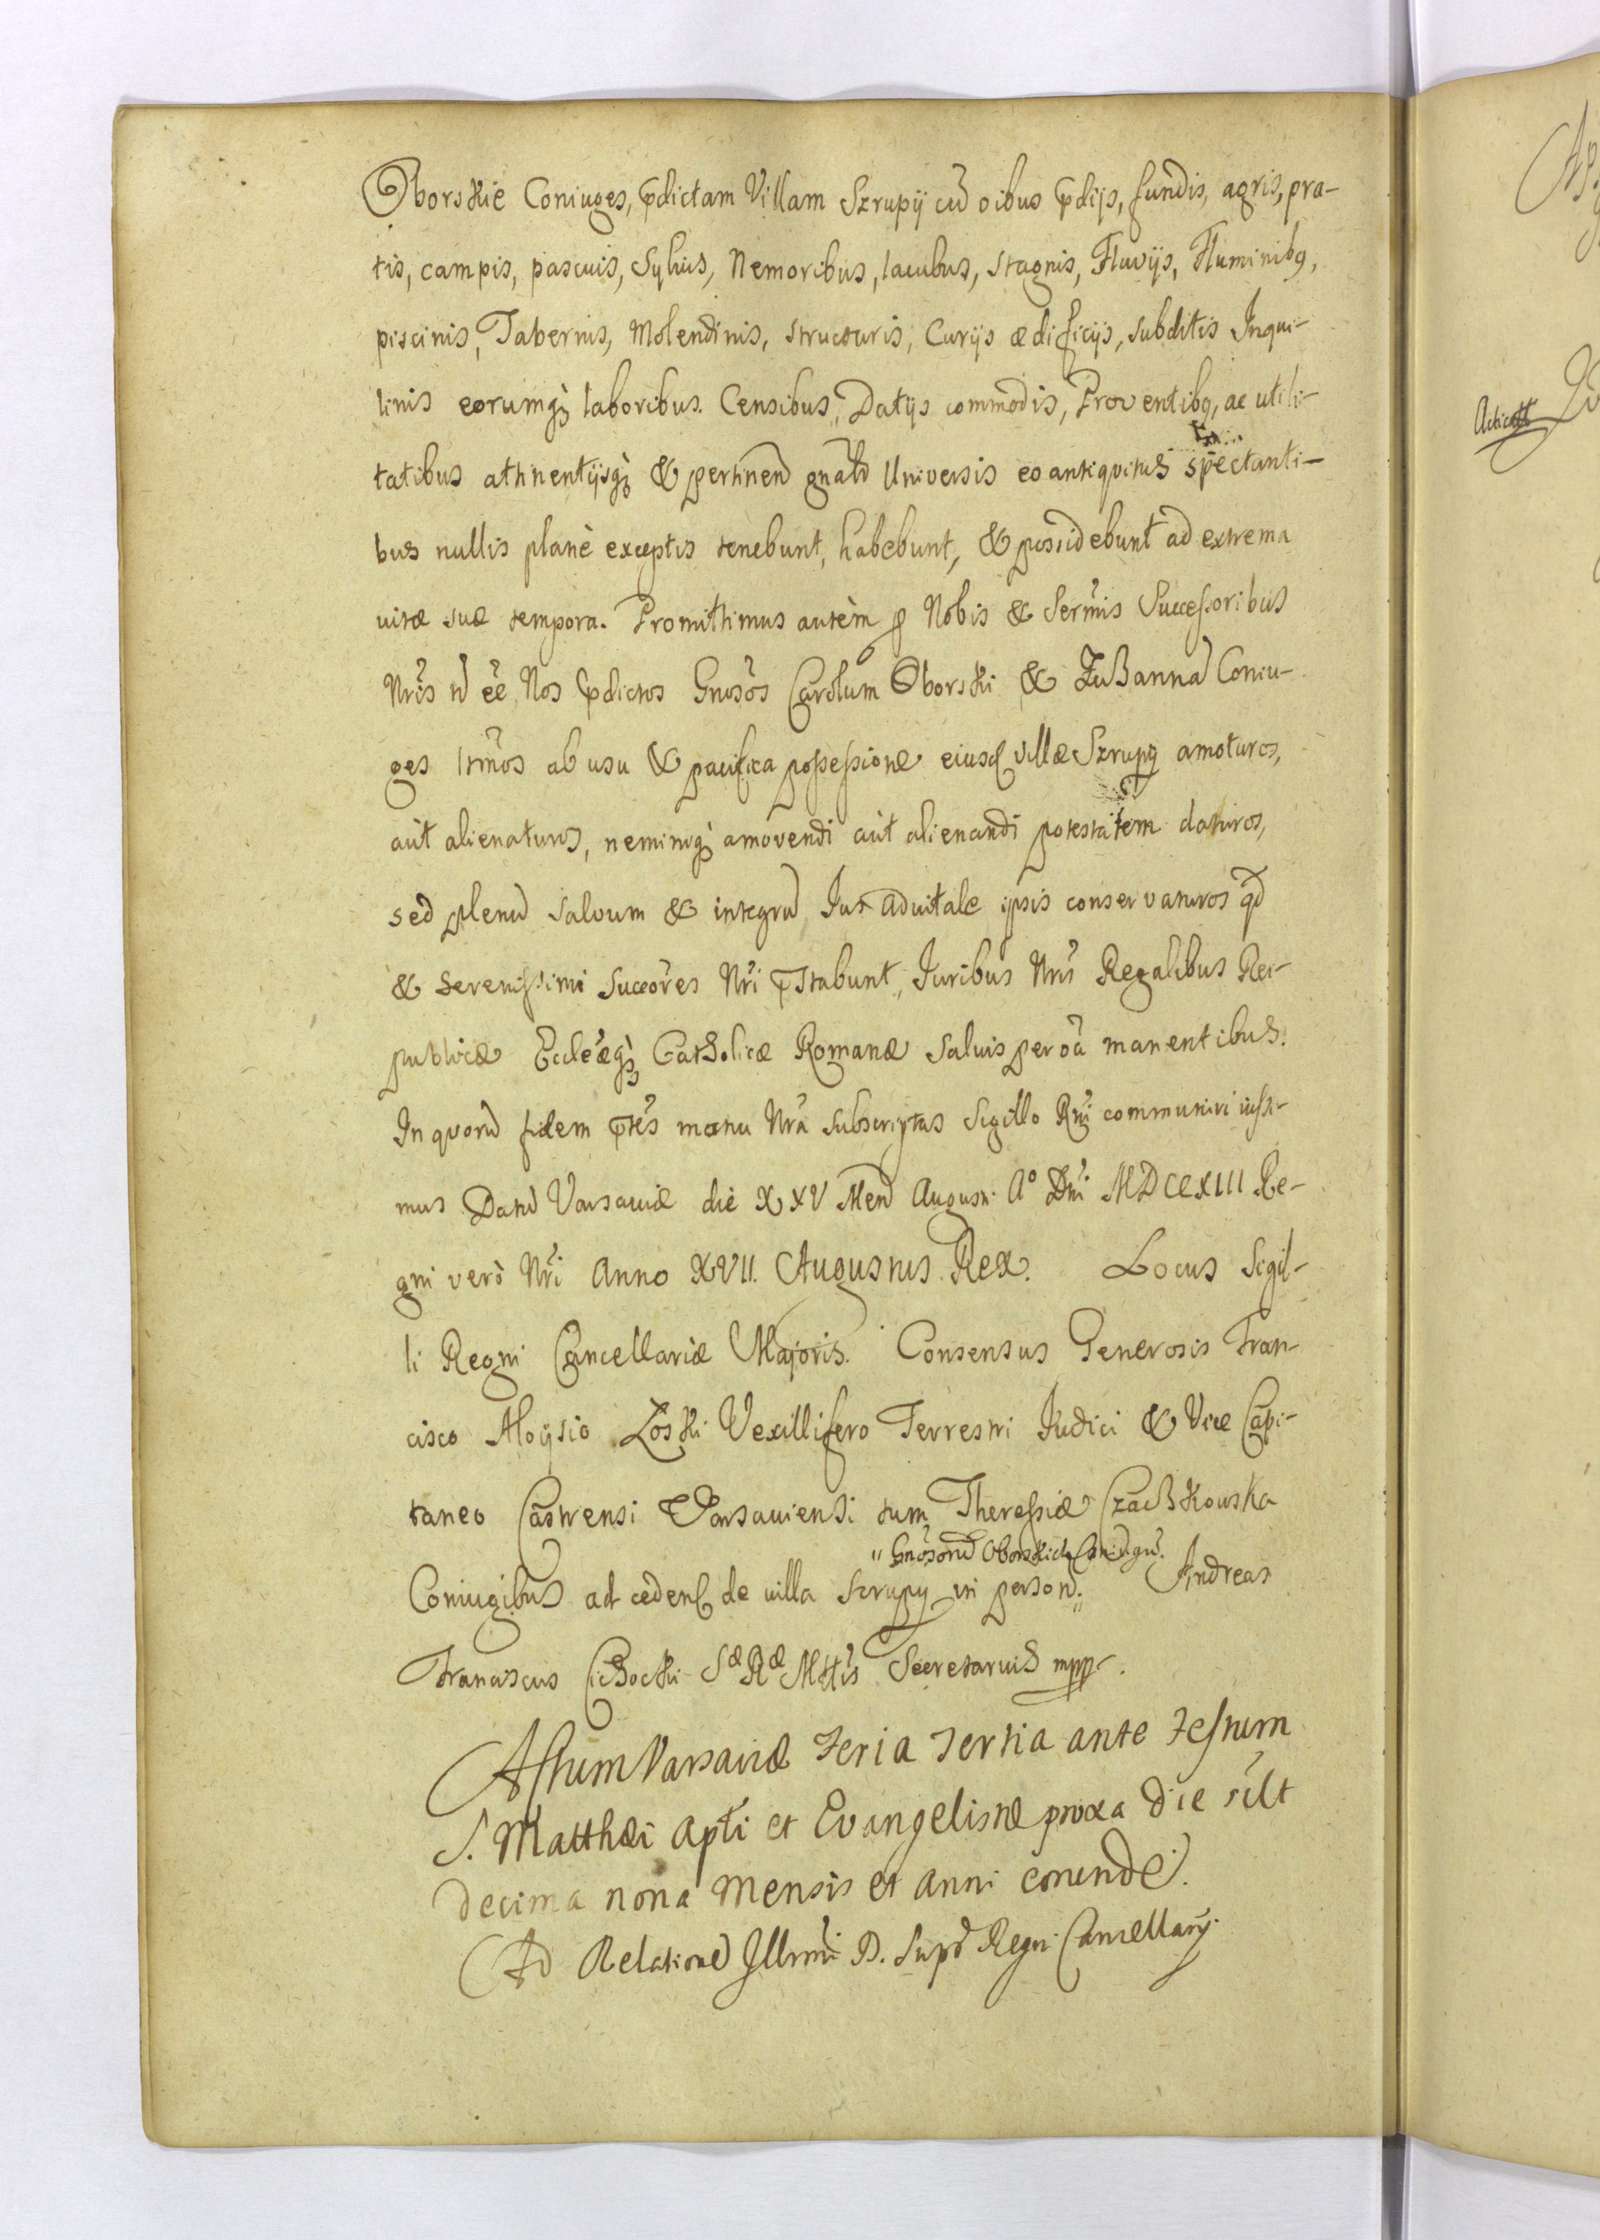 Oborskie Coniuges, p̃dictam Villam Szrupÿ cũ oibus p̃dijs, fundis, agris, pra-
tis, campis, pascuis, Sylvis, Nemoribus, lacubus, Stagnis, Fluvijs, Fluminibq,
piscinis, Tabernis, Molendinis, structuris, Curijs ædificijs, subditis Inqui-
linis eorumq; laboribus. Censibus, Datijs commodis, Proventibq, ac utili-
tatibus attinentijsq; & pertinen gnalr Universis eo antiqvitus spectanti-
bus nullis planè exceptis tenebunt, habebunt, & possidebunt ad extrema
vitæ suæ tempora. Promittimus autèm p Nobis & Sermis Successoribus
Nris ñ eẽ Nos p̃dictos Gnosos Carolum Oborski & Zußannã Coniu-
ges ab usu & pacifica possessione eiusd villæ Szrupy amoturos,
aut alienaturos, neminiq; amovendi aut alienandi potestatem daturos,
sed plenũ salvum & integrũ Jus advitale ipsis conservaturos qd
& Serenissimi Succores Nri p̃stabunt, Juribus Nris Regalibus Rei-
publicæ Eccleæq; Catholicæ Romanæ salvis peroa manentibus.
In quorũ fidem p̃tes manu Nra subscriptas Sigillo Rni communiri iussi-
mus Datũ Varsaviæ die XXV Men Augusti Aº Dni MDCCXIII Re-
gni verò Nri Anno XVII. Augustus Rex. Locus Sigil-
li Regni Cancellariæ Majoris. Consensus Generosis Fran-
cisco Aloÿsio Łoski Vexillifero Terrestri Iudici & Vice Capi-
taneo Castrensi Varsaviensi tum Theressiæ Czaßkouska
"Gnosorũ Oborskich Coniugũ.
Coniugibus ad cedend de villa Szrupy in person." Andreas
Franciscus Cichocki Sæ Ræ Mttis Secretarius mpp.
Actum Varsaviæ Feria Tertia ante Festum
S. Matthæi Apti et Evangelistæ proxa die silt
decima nona Mensis et Anni eorunde.
Ad Relationẽ Illrmi D. Supr Regni Cancellarij.
Acticatt